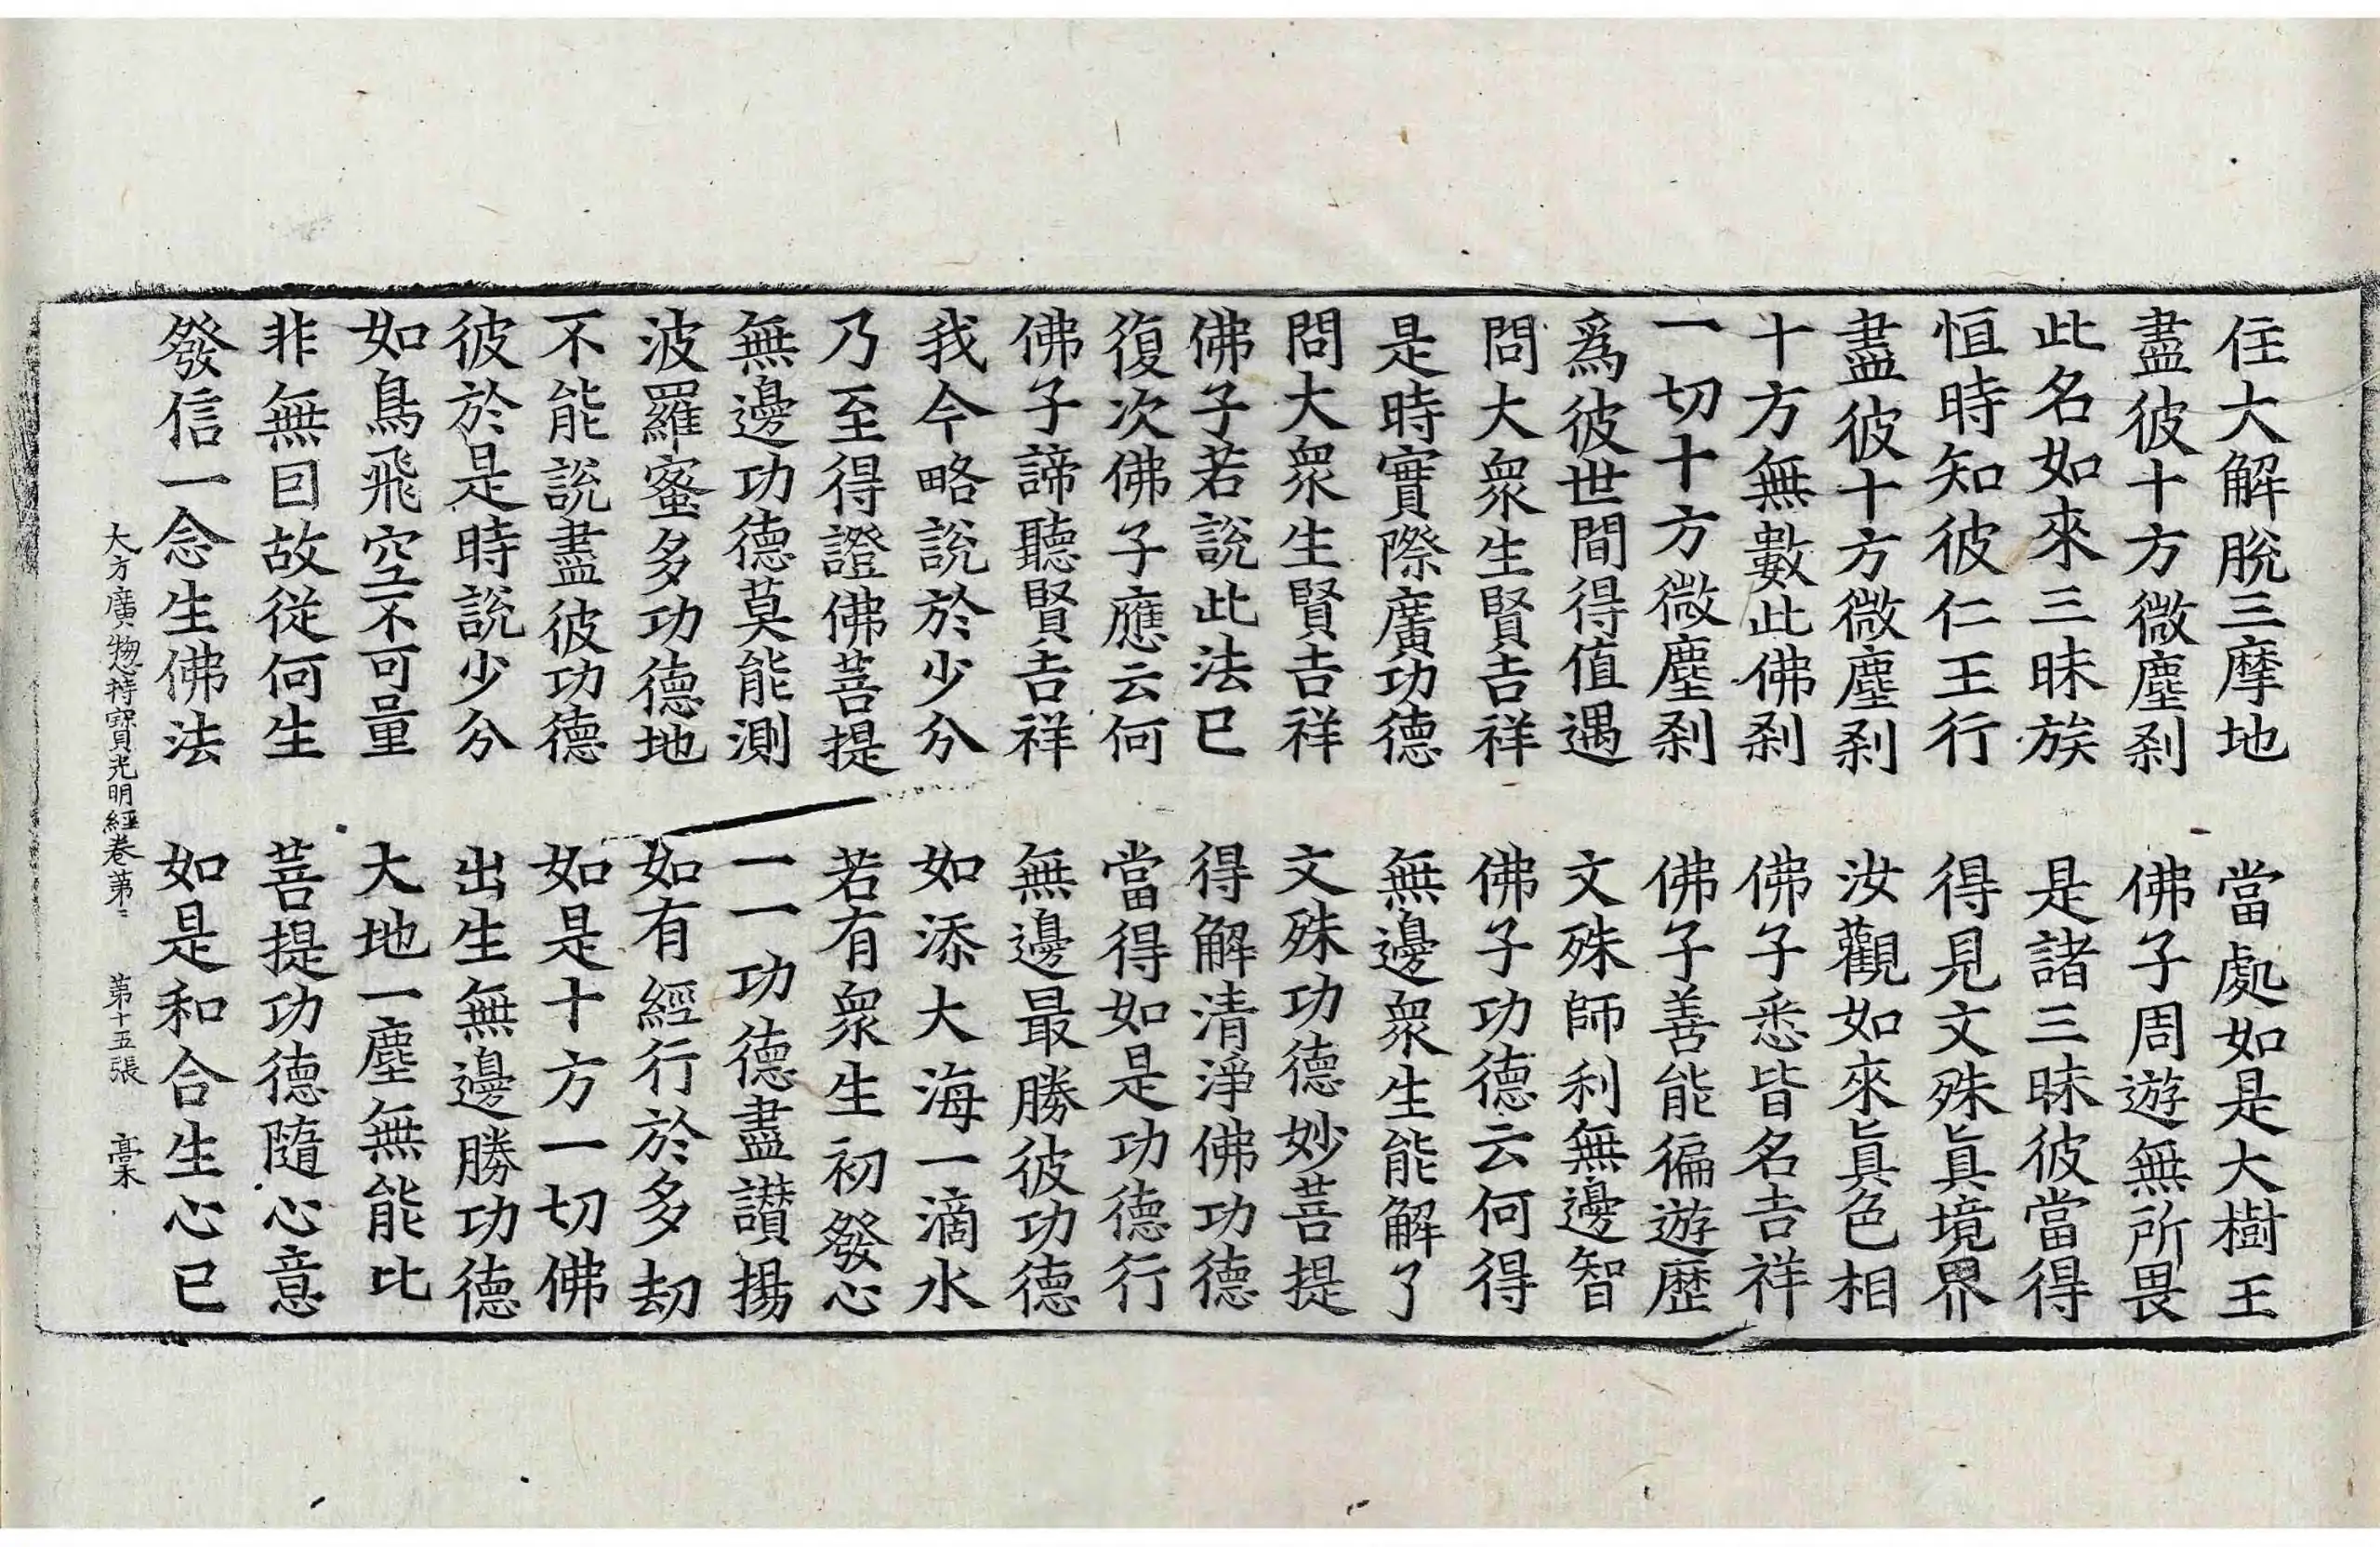 住大解脫三摩地　當處如是大樹王
盡彼十方微塵剎　佛子周遊無所畏
此名如來三昧族　是諸三昧彼當得
恒時知彼仁王行　得見文殊眞境界
盡彼十方微塵剎　汝觀如來眞色相
十方無數此佛剎　佛子悉皆名吉祥
一切十方微塵剎　佛子善能徧遊歷
爲彼世間得值遇　文殊師利無邊智
問大衆生賢吉祥　佛子功德云何得
是時實際廣功德　無邊衆生能解了
問大衆生賢吉祥　文殊功德妙菩提
佛子若說此法已　得解清淨佛功德
復次佛子應云何　當得如是功德行
佛子諦聽賢吉祥　無邊最勝彼功德
我今略說於少分　如添大海一滴水
乃至得證佛菩提　若有衆生初發心
無邊功德莫能測　一一功德盡讚揚
波羅蜜多功德地　如有經行於多劫
不能說盡彼功德　如是十方一切佛
彼於是時說少分　出生無邊勝功德
如鳥飛空不可量　大地一塵無能比
非無囙故從何生　菩提功德隨心意
發信一念生佛法　如是和合生心已
大方廣揔持寶光明經卷第三　第十五張　槀